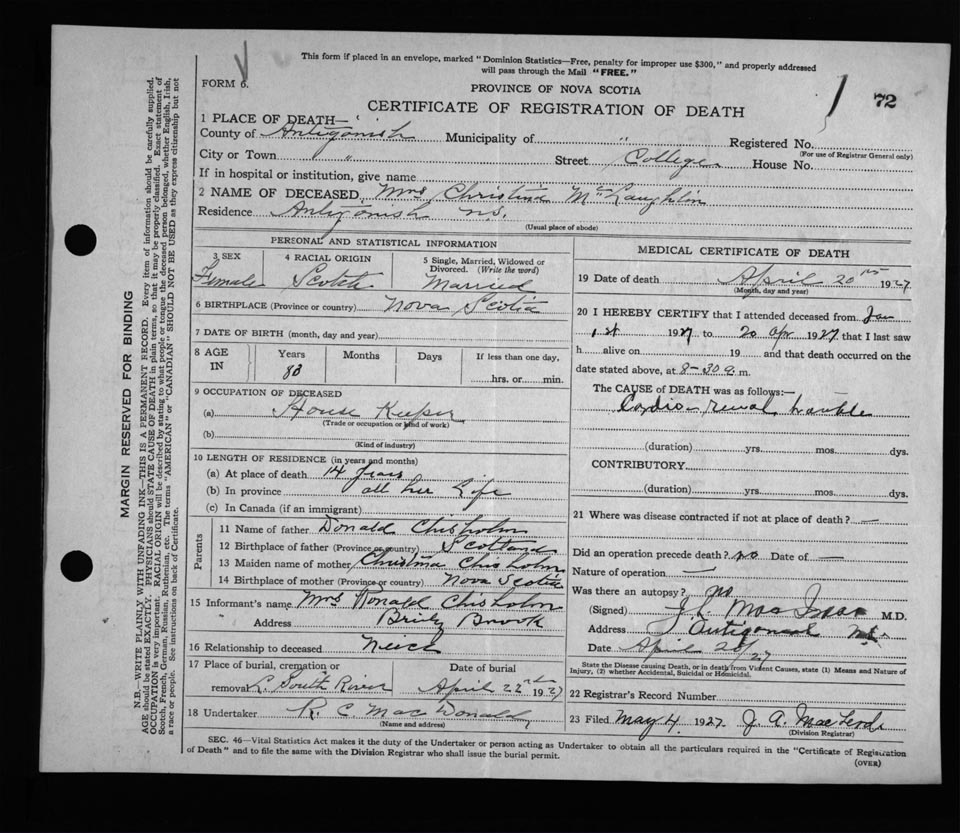 This form if placed in an envelope, marked "Dominion Statistics—Free, penalty for improper use $300," and properly addressed
will pass through the Mail "FREE."
FORM 6.
PROVINCE OF NOVA SCOTIA
72
CERTIFICATE OF REGISTRATION OF DEATH
1 PLACE OF DEATH—
County of Antigonish Municipality of " Registered No.
(For use of Registrar General only)
City or Town " Street College House No.
If in hospital or institution, give name
2 NAME OF DECEASED, Mrs Christina McLaughlin
Residence Antigonish N.S.
(Usual place of abode)
PERSONAL AND STATISTICAL INFORMATION
3 SEX 4 RACIAL ORIGIN 5 Single, Married, Widowed or
Divorced. (Write the word)
Female Scotch Married
6 BIRTHPLACE (Province or country) Nova Scotia
7 DATE OF BIRTH (month, day and year)
8 AGE Years Months Days If less than one day,
IN 83 hrs. or min.
9 OCCUPATION OF DECEASED
(a) House Keeper
(Trade or occupation or kind of work)
(b)
(Kind of industry)
10 LENGTH OF RESIDENCE (in years and months)
(a) At place of death 14 years
(b) In province all her Life
(c) In Canada (if an immigrant)
Parents
11 Name of father Donald Chisholm
12 Birthplace of father (Province or country) Scotland
13 Maiden name of mother Christina Chisholm
14 Birthplace of mother (Province or country) Nova Scotia
15 Informant's name Mrs Ronald Chisholm
" Address Briley Brook
16 Relationship to deceased Neice
17 Place of burial, cremation or Date of burial
removal L. South River April 22nd 1927
18 Undertaker R. C. MacDonald
(Name and address)
MEDICAL CERTIFICATE OF DEATH
19 Date of death April 20th 1927
(Month, day and year)
20 I HEREBY CERTIFY that I attended deceased from Jan
1st 1927 to 20 Apr 1927 that I last saw
h alive on 19 and that death occurred on
date stated above, at 8-30 a. m.
The CAUSE of DEATH was as follows:—
Cardio renal trouble
(duration) yrs. mos. dys.
CONTRIBUTORY
(duration) yrs. mos. dys.
21 Where was disease contracted if not at place of death? —
Did an operation precede death? no Date of —
Nature of operation —
Was there an autopsy? no
(Signed) M.D.
Address Antigonish N.S.
Date April 20/27
State the Disease causing Death, or in death from Violent Causes, state (1) Means and Nature of
Injury, (2) whether Accidental, Suicidal or Homicidal.
22 Registrar's Record Number
23 Filed May 4 1927. J. A. MacLeod
(Division Registrar)
SEC. 46—Vital Statistics Act makes it the duty of the Undertaker or person acting as Undertaker to obtain all the particulars required in the "Certificate of Registration
of Death" and to file the same with the Division Registrar who shall issue the burial permit.
(OVER)
MARGIN RESERVED FOR BINDING
N.B.—WRITE PLAINLY WITH UNFADING INK—THIS IS A PERMANENT RECORD. Every item of information should be carefully supplied.
AGE should be stated EXACTLY. PHYSICIANS should STATE CAUSE OF DEATH in plain terms, so that it may be properly classified. Exact statement of
OCCUPATION is very important. RACIAL ORIGIN will be described by stating to what people or tongue the deceased person belonged, whether English, Irish,
Scotch, French, German, Russian, Ruthenian, etc. The terms "AMERICAN" or "CANADIAN" SHOULD NOT BE USED as they express citizenship but not
a race or people. See instructions on back of Certificate.